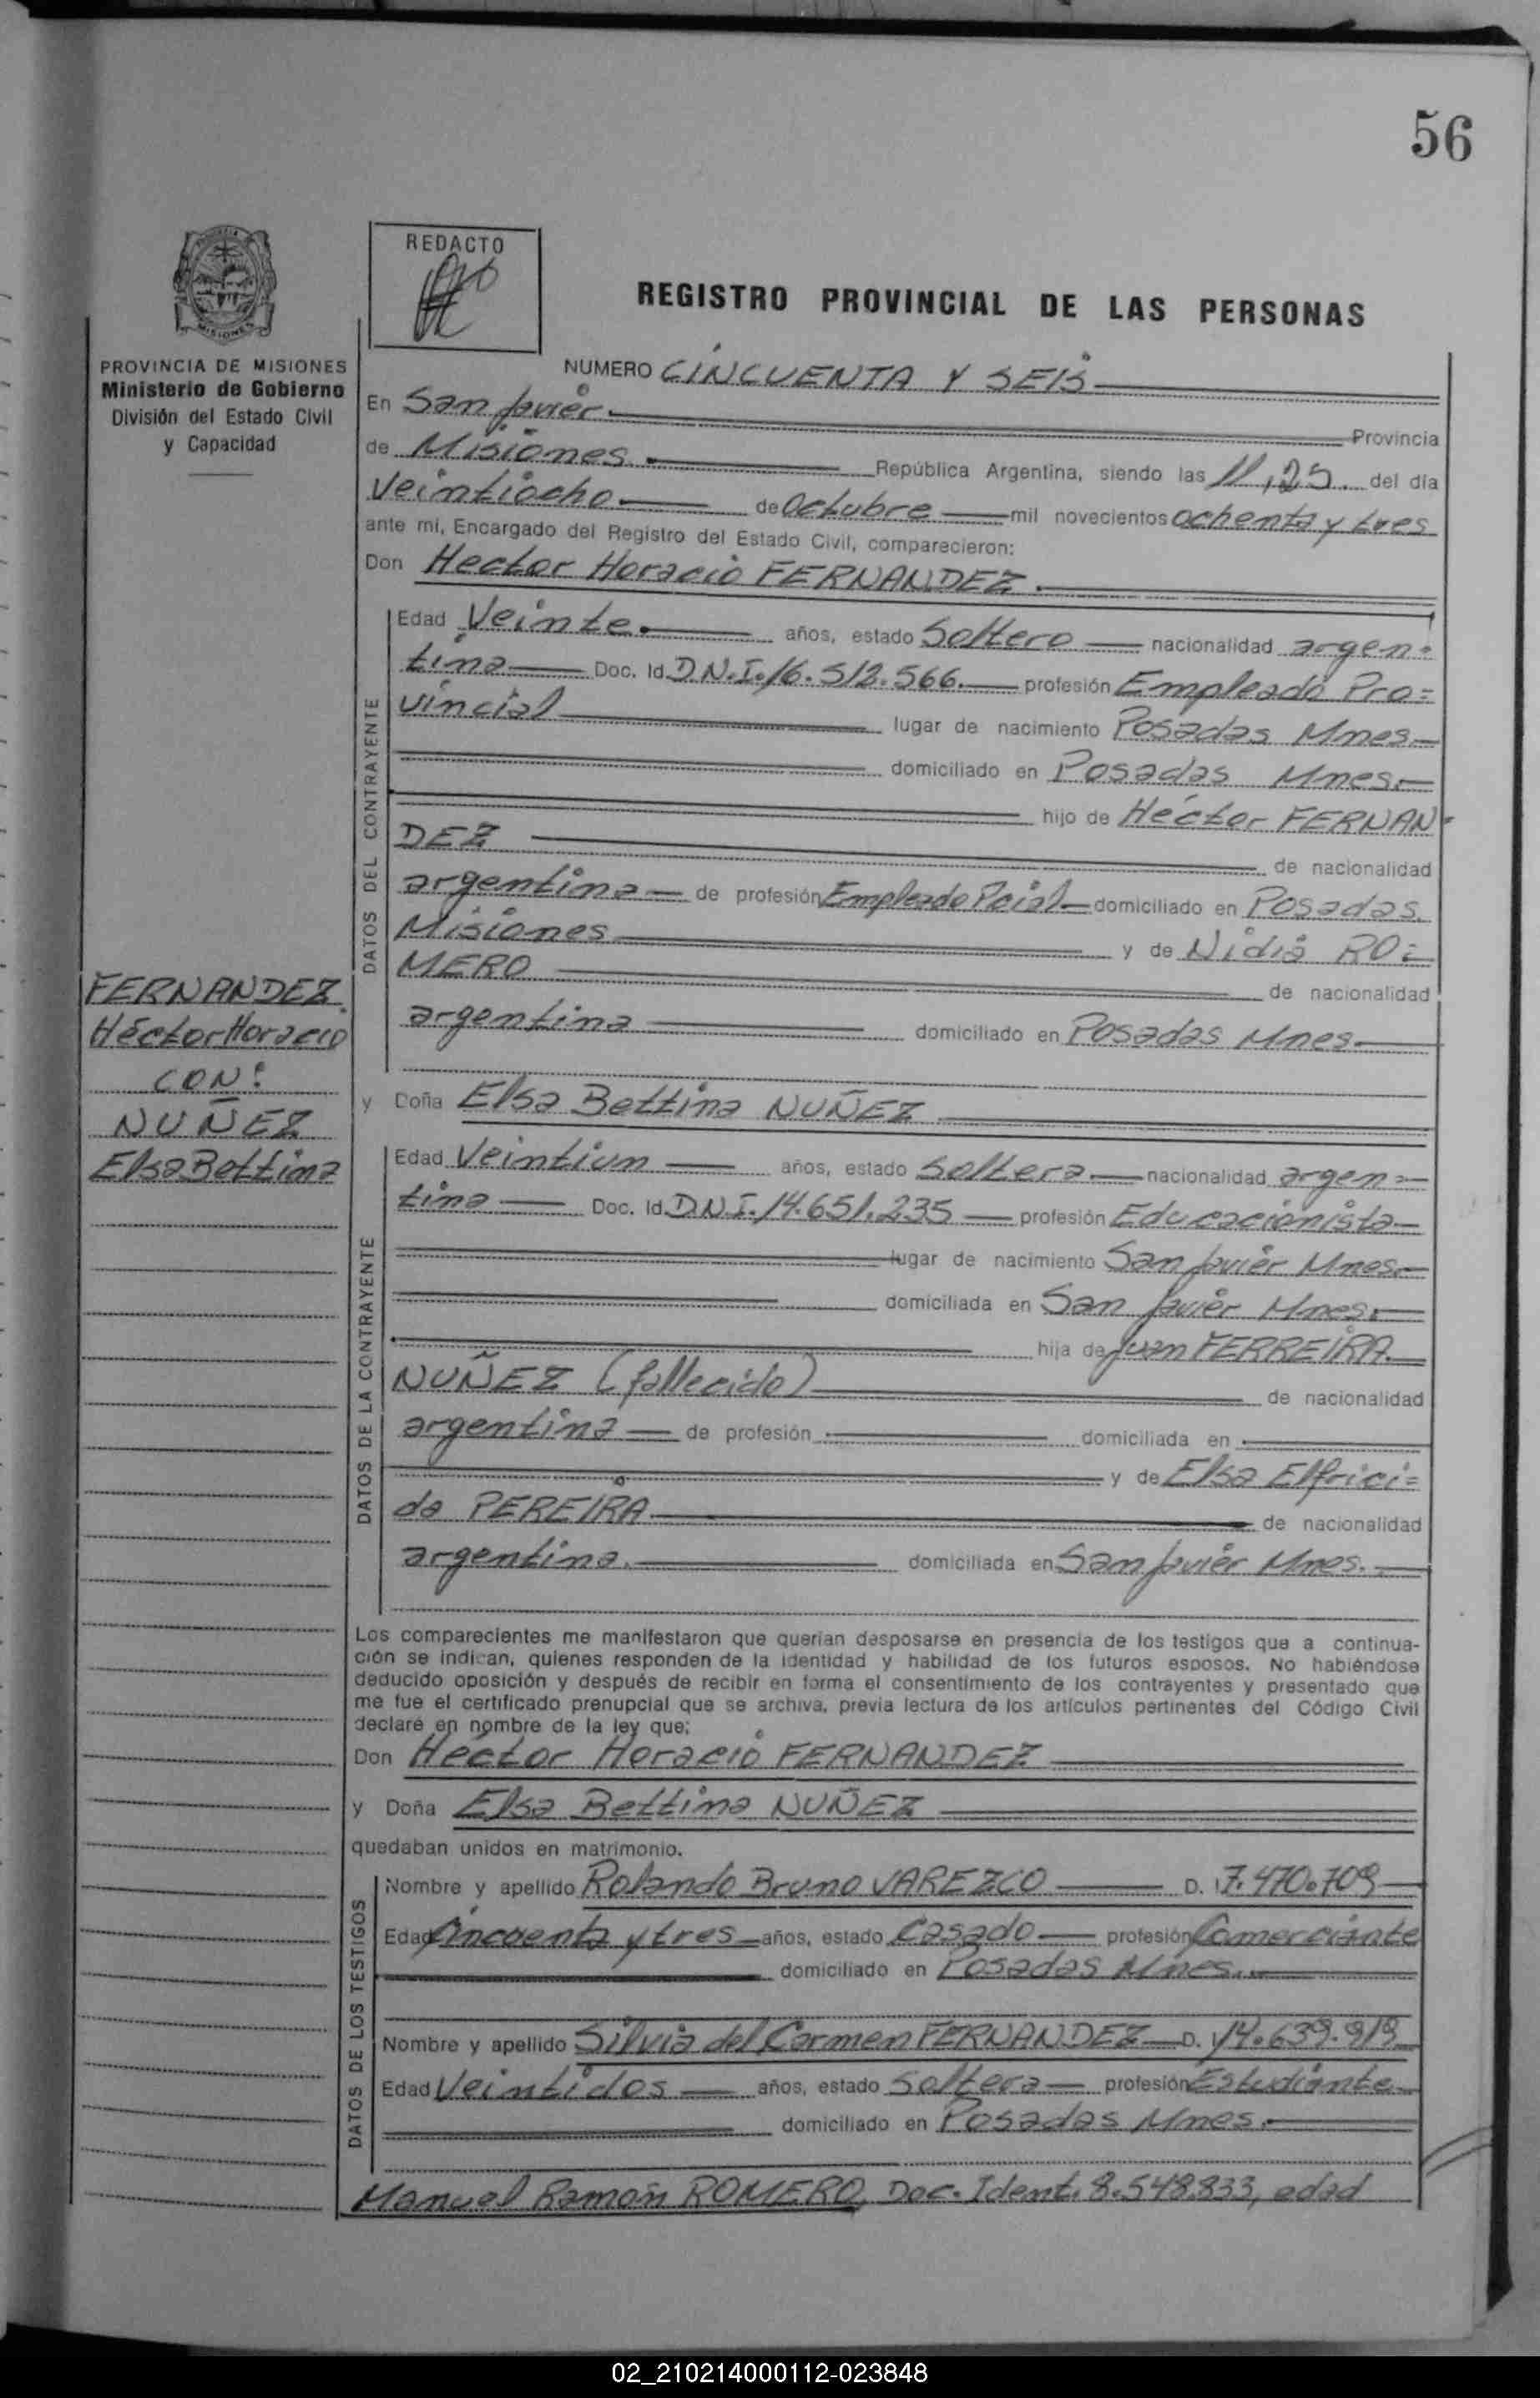 56
REDACTO
REGISTRO PROVINCIAL DE LAS PERSONAS
MISIONES
PROVINCIA DE MISIONES
Ministerio de Gobierno
División del Estado Civil
y Capacidad
NUMERO CINCUENTA Y SEIS
En San Javier. Provincia
de Misiones. República Argentina, siendo las 11,25. del día
Veintiocho de Octubre mil novecientos ochenta y tres
ante mí, Encargado del Registro del Estado Civil, comparecieron:
Don Hector Horacio FERNANDEZ.
DATOS DEL CONTRAYENTE
Edad Veinte. años, estado Soltero nacionalidad argen-
tina Doc. Id. D.N.I. 16.512.566. profesión Empleado Pro=
vincial lugar de nacimiento Posadas Mnes.
domiciliado en Posadas Mnes.
hijo de Héctor FERNAN-
DEZ de nacionalidad
argentina de profesión Empleado Pcial domiciliado en Posadas.
Misiones y de Nidia RO=
MERO de nacionalidad
argentina domiciliado en Posadas Mnes.
FERNANDEZ
Héctor Horacio
CON:
NUÑEZ
Elsa Bettina
y Doña Elsa Bettina NUÑEZ
DATOS DE LA CONTRAYENTE
Edad Veintiun años, estado Soltera. nacionalidad argen=
tina Doc. Id. D.N.I. 14.651.235 profesión Educacionista
lugar de nacimiento San Javier Mnes.
domiciliada en San Javier Mnes.
hija de Juan FERREIRA.
NUÑEZ (fallecido) de nacionalidad
argentina de profesión domiciliada en
y de Elsa Elfrici=
da PEREIRA. de nacionalidad
argentina. domiciliada en San Javier Mnes.
Los comparecientes me manifestaron que querían desposarse en presencia de los testigos que a continua-
ción se indican, quienes responden de la identidad y habilidad de los futuros esposos. No habiéndose
deducido oposición y después de recibir en forma el consentimiento de los contrayentes y presentado que
me fue el certificado prenupcial que se archiva, previa lectura de los artículos pertinentes del Código Civil
declaré en nombre de la ley que:
Don Héctor Horacio FERNANDEZ
y Doña Elsa Bettina NUÑEZ
quedaban unidos en matrimonio.
DATOS DE LOS TESTIGOS
Nombre y apellido Rolando Bruno VAREZCO D. I 7.470.709
Edad Cincuenta y tres años, estado Casado profesión Comerciante
domiciliado en Posadas Mnes.
Nombre y apellido Silvia del Carmen FERNANDEZ D. I 14.639.919
Edad Veintidos años, estado Soltera profesión Estudiante
domiciliado en Posadas Mnes.
Manuel Ramón ROMERO, Doc. Ident. 8.548.833, edad
02_210214000112-023848